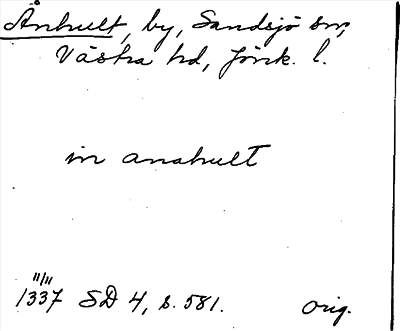 Ånhult, by, Sandsjö sn,
Västra hd, Jönk. l.
in anahult
11/11
1337 SD 4, s. 581. orig.